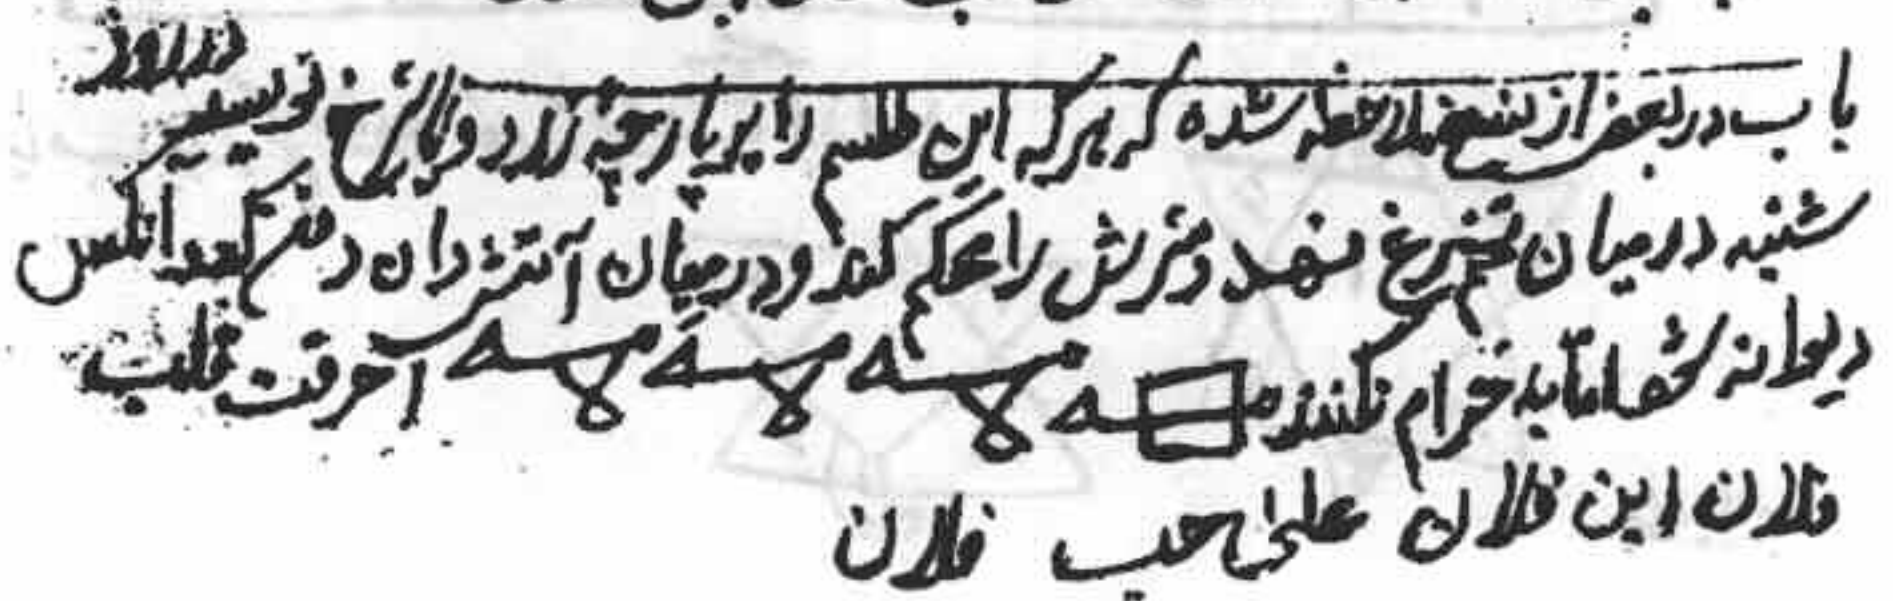 باب در بعضی از نسخ ملاحظه شده که هر که این طلسم را بر پارچه زرد و یا سرخ نویسد در روز
شنبه در میان تخم مرغ نهد و سرش را محکم کند و در میان آتش دان دفن کند انکس
دیوانه شود اما باید حرام نکند احرقت قلب
فلان ابن فلان علی حب فلان